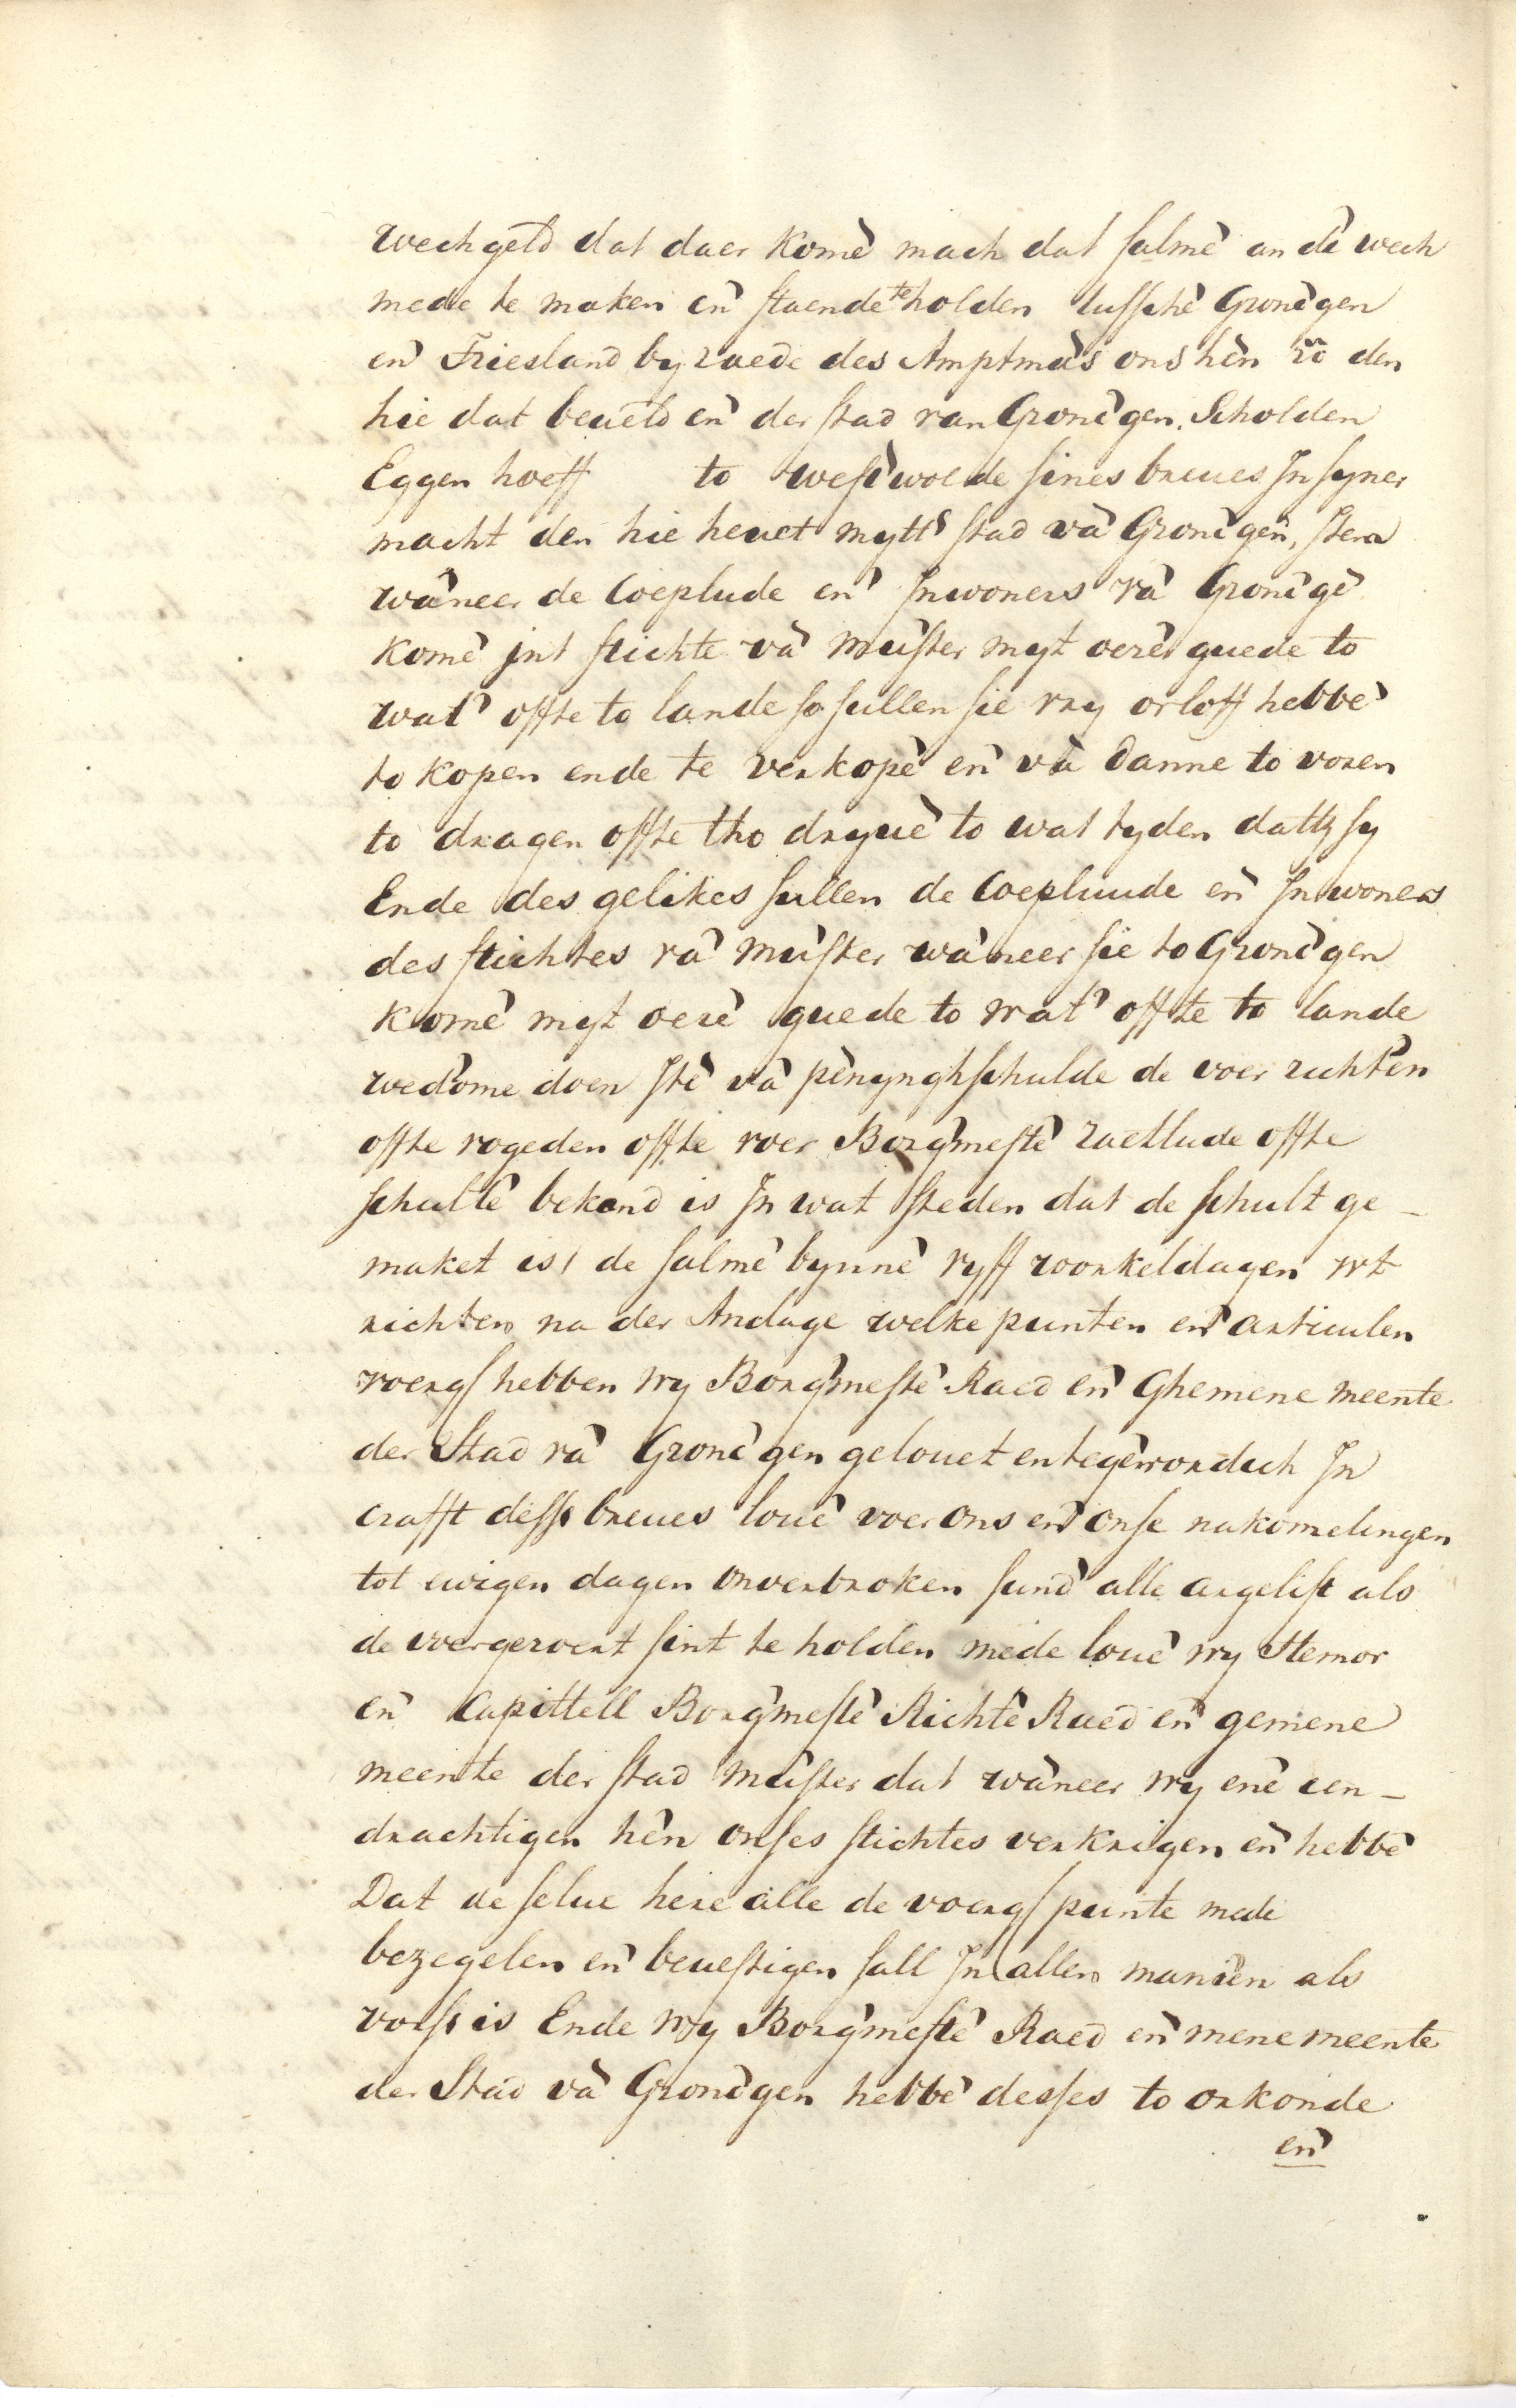 wechgeld dat daer komē mach dat salmē an dē wech
mede te maken en̄ staende te holden tusschē Gronīgen
en̄ Friesland by raede des Amptmās ons hēn vā den
hie dat beueld en̄ der stad van Gronīgen. Scholden
Eggen hoeff to westwolde sines breues In syner
macht den hie heuet mytt stad vā Gronīgen, Item
wāneer de Coeplude en̄ Inwoners vā Gronīgē
komē int stichte vā mūster myt oerēr guede to
wat' offte to lande so sullen sie vry orloff hebbē
to kopen ende te verkopē en̄ vā danne to voren
to dragen offte tho dryuē to wat tyden dattz sy
Ende des gelikes sullen de Coepluude en̄ Inwoners
des stichtes vā mūster wāneer sie to Gronīgen
komē myt oerē guede to wat' offte to lande
wed'ome doen Itē vā pēnynghschulde de voer richtēn
offte vogeden offte voer Borg'mestē raetlude offte
schultē bekand is In wat steden dat de schult ge-
maket ist de salmē bynnē vyff woorkeldagen wt
richten na der Andage welke punten en̄ articulen
voergs hebben wy Borg'mestē Raed en̄ Ghemene meente
der Stad vā Gronīgen gelouet en tegēwordich In
crafft desss breues louē voer ons en̄ onse nakomelingen
tot ewigen dagen onverbroken sund' alle argelist als
de voergeroert sint te holden mede louē wy Stemor
en̄ Capittell Borg'mestē Richtē Raed en̄ gemene
meente der stad mūster dat wāneer wy enē een-
drachtigen hēn onses stichtes verkrigen en̄ hebbē
Dat de selue here alle de voergs puntē mede
bezegelen en̄ beuestigen sall In allen maniēn als
vorss is Ende wy Borg'mestē Raed en̄ mene meente
der Stad vā Gronīgen hebbē desses to orkonde
en̄